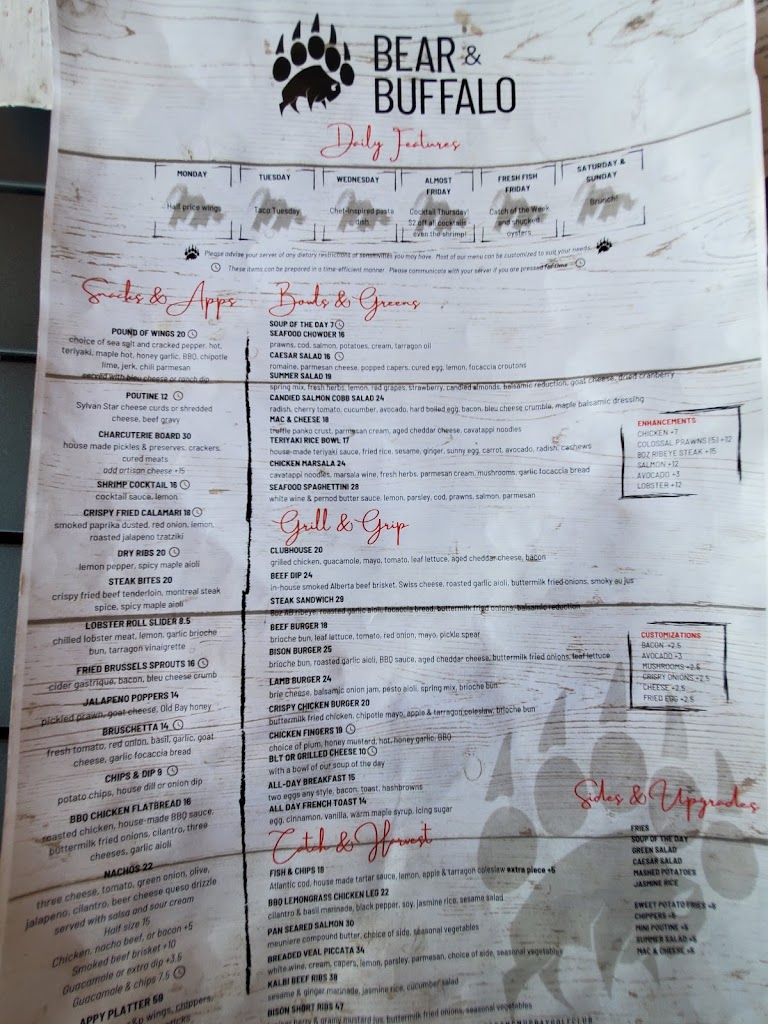 BEAR &
BUFFALO
Daily Features
MONDAY
Half price wings
TUESDAY
Taco Tuesday
WEDNESDAY
Chef-inspired pasta
dish
ALMOST
FRIDAY
Cocktail Thursday!
$2 off all cocktails
even the shrimp!
FRESH FISH
FRIDAY
Catch of the Week
and shucked
oysters
SATURDAY &
SUNDAY
Brunch!
Please advise your server of any dietary restrictions or sensitivities you may have. Most of our menu can be customized to suit your needs.
These items can be prepared in a time-efficient manner. Please communicate with your server if you are pressed for time
Snacks & Apps
POUND OF WINGS 20
choice of sea salt and cracked pepper, hot,
teriyaki, maple hot, honey garlic, BBQ, chipotle
lime, jerk, chili parmesan
served with bleu cheese or ranch dip
POUTINE 12
Sylvan Star cheese curds or shredded
cheese, beef gravy
CHARCUTERIE BOARD 30
house made pickles & preserves, crackers,
cured meats
add artisan cheese +15
SHRIMP COCKTAIL 16
cocktail sauce, lemon
CRISPY FRIED CALAMARI 18
smoked paprika dusted, red onion, lemon,
roasted jalapeno tzatziki
DRY RIBS 20
lemon pepper, spicy maple aioli
STEAK BITES 20
crispy fried beef tenderloin, montreal steak
spice, spicy maple aioli
LOBSTER ROLL SLIDER 8.5
chilled lobster meat, lemon, garlic brioche
bun, tarragon vinaigrette
FRIED BRUSSELS SPROUTS 16
cider gastrique, bacon, bleu cheese crumb
JALAPENO POPPERS 14
pickled prawn, goat cheese, Old Bay honey
BRUSCHETTA 14
fresh tomato, red onion, basil, garlic, goat
cheese, garlic focaccia bread
CHIPS & DIP 9
potato chips, house dill or onion dip
BBQ CHICKEN FLATBREAD 16
roasted chicken, house-made BBQ sauce,
buttermilk fried onions, cilantro, three
cheeses, garlic aioli
NACHOS 22
three cheese, tomato, green onion, olive,
jalapeno, cilantro, beer cheese queso drizzle
served with salsa and sour cream
Half size 15
Chicken, nacho beef, or bacon +5
Smoked beef brisket +10
Guacamole or extra dip +3.5
Guacamole & chips 7.5
APPY PLATTER 59
wings, chippers,
Bowls & Greens
SOUP OF THE DAY 7
SEAFOOD CHOWDER 16
prawns, cod, salmon, potatoes, cream, tarragon oil
CAESAR SALAD 16
romaine, parmesan cheese, popped capers, cured egg, lemon, focaccia croutons
SUMMER SALAD 19
spring mix, fresh herbs, lemon, red grapes, strawberry, candied almonds, balsamic reduction, goat cheese, dried cranberry
CANDIED SALMON COBB SALAD 24
radish, cherry tomato, cucumber, avocado, hard boiled egg, bacon, bleu cheese crumble, maple balsamic dressing
MAC & CHEESE 18
truffle panko crust, parmesan cream, aged cheddar cheese, cavatappi noodles
TERIYAKI RICE BOWL 17
house-made teriyaki sauce, fried rice, sesame, ginger, sunny egg, carrot, avocado, radish, cashews
CHICKEN MARSALA 24
cavatappi noodles, marsala wine, fresh herbs, parmesan cream, mushrooms, garlic focaccia bread
SEAFOOD SPAGHETTINI 28
white wine & pernod butter sauce, lemon, parsley, cod, prawns, salmon, parmesan
ENHANCEMENTS
CHICKEN +7
COLOSSAL PRAWNS (5) +12
8OZ RIBEYE STEAK +15
SALMON +12
AVOCADO +3
LOBSTER +12
Grill & Grip
CLUBHOUSE 20
grilled chicken, guacamole, mayo, tomato, leaf lettuce, aged cheddar cheese, bacon
BEEF DIP 24
in-house smoked Alberta beef brisket, Swiss cheese, roasted garlic aioli, buttermilk fried onions, smoky au jus
STEAK SANDWICH 29
8oz AB ribeye, roasted garlic aioli, focaccia bread, buttermilk fried onions, balsamic reduction
BEEF BURGER 18
brioche bun, leaf lettuce, tomato, red onion, mayo, pickle spear
BISON BURGER 25
brioche bun, roasted garlic aioli, BBQ sauce, aged cheddar cheese, buttermilk fried onions, leaf lettuce
LAMB BURGER 24
brie cheese, balsamic onion jam, pesto aioli, spring mix, brioche bun
CRISPY CHICKEN BURGER 20
buttermilk fried chicken, chipotle mayo, apple & tarragon coleslaw, brioche bun
CHICKEN FINGERS 19
choice of plum, honey mustard, hot, honey garlic, BBQ
BLT OR GRILLED CHEESE 10
with a bowl of our soup of the day
ALL-DAY BREAKFAST 15
two eggs any style, bacon, toast, hashbrowns
ALL DAY FRENCH TOAST 14
egg, cinnamon, vanilla, warm maple syrup, icing sugar
CUSTOMIZATIONS
BACON +2.5
AVOCADO +3
MUSHROOMS +2.5
CRISPY ONIONS +2.5
CHEESE +2.5
FRIED EGG +2.5
Catch & Harvest
FISH & CHIPS 18
Atlantic cod, house made tartar sauce, lemon, apple & tarragon coleslaw extra piece +5
BBQ LEMONGRASS CHICKEN LEG 22
cilantro & basil marinade, black pepper, soy, jasmine rice, sesame salad
PAN SEARED SALMON 30
meuniere compound butter, choice of side, seasonal vegetables
BREADED VEAL PICCATA 34
white wine, cream, capers, lemon, parsley, parmesan, choice of side, seasonal vegetables
KALBI BEEF RIBS 38
sesame & ginger marinade, jasmine rice, cucumber salad
BISON SHORT RIBS 47
berry & grainy mustard jus, buttermilk fried onions, seasonal vegetables
Sides & Upgrades
FRIES
SOUP OF THE DAY
GREEN SALAD
CAESAR SALAD
MASHED POTATOES
JASMINE RICE
SWEET POTATO FRIES +5
CHIPPERS +5
MINI POUTINE +5
SUMMER SALAD +5
MAC & CHEESE +5